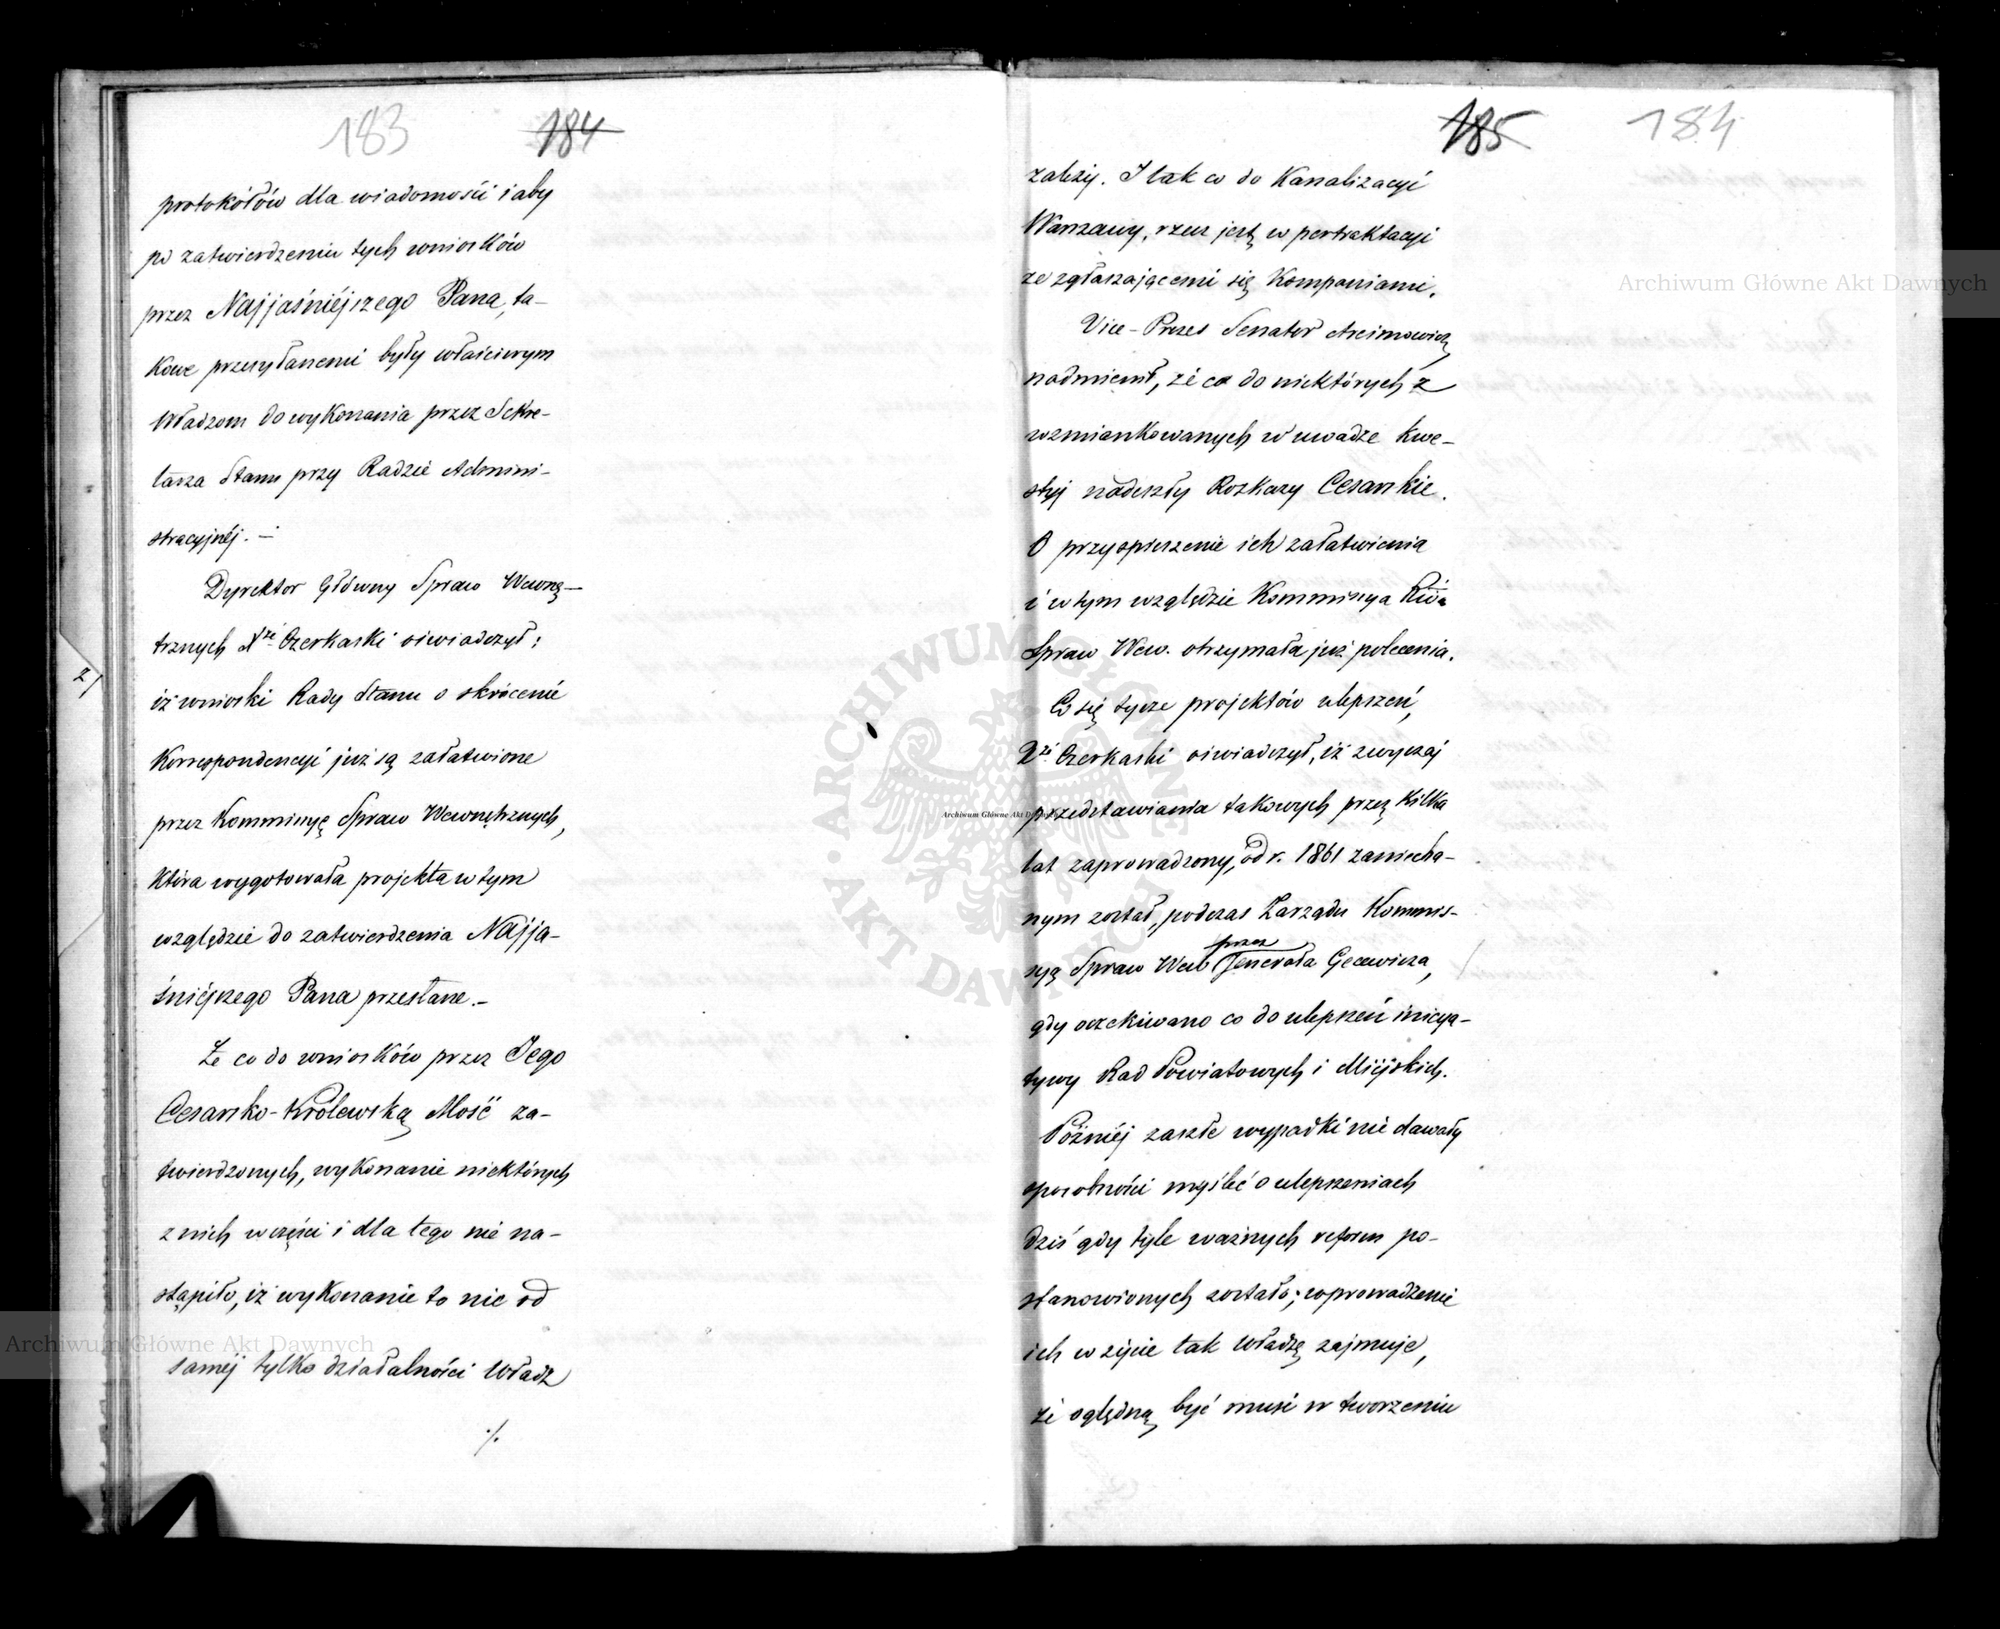 183 184
protokółów dla wiadomości i aby
po zatwierdzeniu tych wniosków
przez Najjaśniéjszego Pana, ta-
kowe przesyłanemi były właściwym
Władzom do wykonania przez Sekre-
tarza Stanu przy Radzie Admini-
stracyjnéj. —
Dyrektor Główny Spraw Wewnę-
trznych Xżę Czerkaski oświadczył:
iż wnioski Rady Stanu o skrócenie
Korrespondencyi już są załatwione
przez Kommissyę Spraw Wewnętrznych,
która wygotowała projekta w tym
względzie do zatwierdzenia Najja-
śniéjszego Pana przesłane. —
Że co do wniosków przez Jego
Cesarsko-Królewską Mość za-
twierdzonych, wykonanie niektórych
z nich w części i dla tego nie na-
stąpiło, iż wykonanie to nie od
saméj tylko działalności Władz
./.
185 184
zależy. I tak co do Kanalizacyi
Warszawy, rzecz jest w pertraktacyi
ze zgłaszającemi się Kompaniami.
Vice-Prezes Senator Arcimowicz
nadmienił, że co do niektórych z
wzmiankowanych w uwadze kwe-
styj nadeszły Rozkazy Cesarskie.
O przyspieszenie ich załatwienia
i w tym względzie Kommissya Rząa
Spraw Wew. otrzymała już polecenia.
Co się tycze projektów ulepszeń,
Xżę Czerkaski oświadczył, iż zwyczaj
przedstawiania takowych przez kilka
lat zaprowadzony, od r. 1861 zaniecha-
nym został, podczas Zarządu Kommis-
przez
syą Spraw Wew Jenerała Gecewicza,
gdy oczekiwano co do ulepszeń inicya-
tywy Rad Powiatowych i Miéjskich.
Późniéj zaszłe wypadki nie dawały
sposobności myśleć o ulepszeniach
dziś gdy tyle ważnych reform po-
stanowionych zostało; wprowadzenie
ich w życie tak Władzę zajmuje,
że oględną być musi w tworzeniu
Archiwum Główne Akt Dawnych
Archiwum Główne Akt Dawnych
Archiwum Główne Akt Dawnych
ARCHIWUM GŁÓWNE • AKT DAWNYCH •